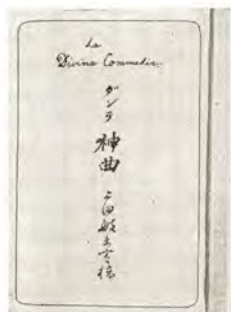 La
Divina Commedia.
ダンテ
神曲
上田敏未定稿